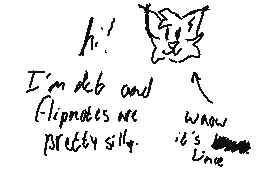 hi!
I'm deb and
flipnotes are
pretty silly.
wraow
it's
Linie